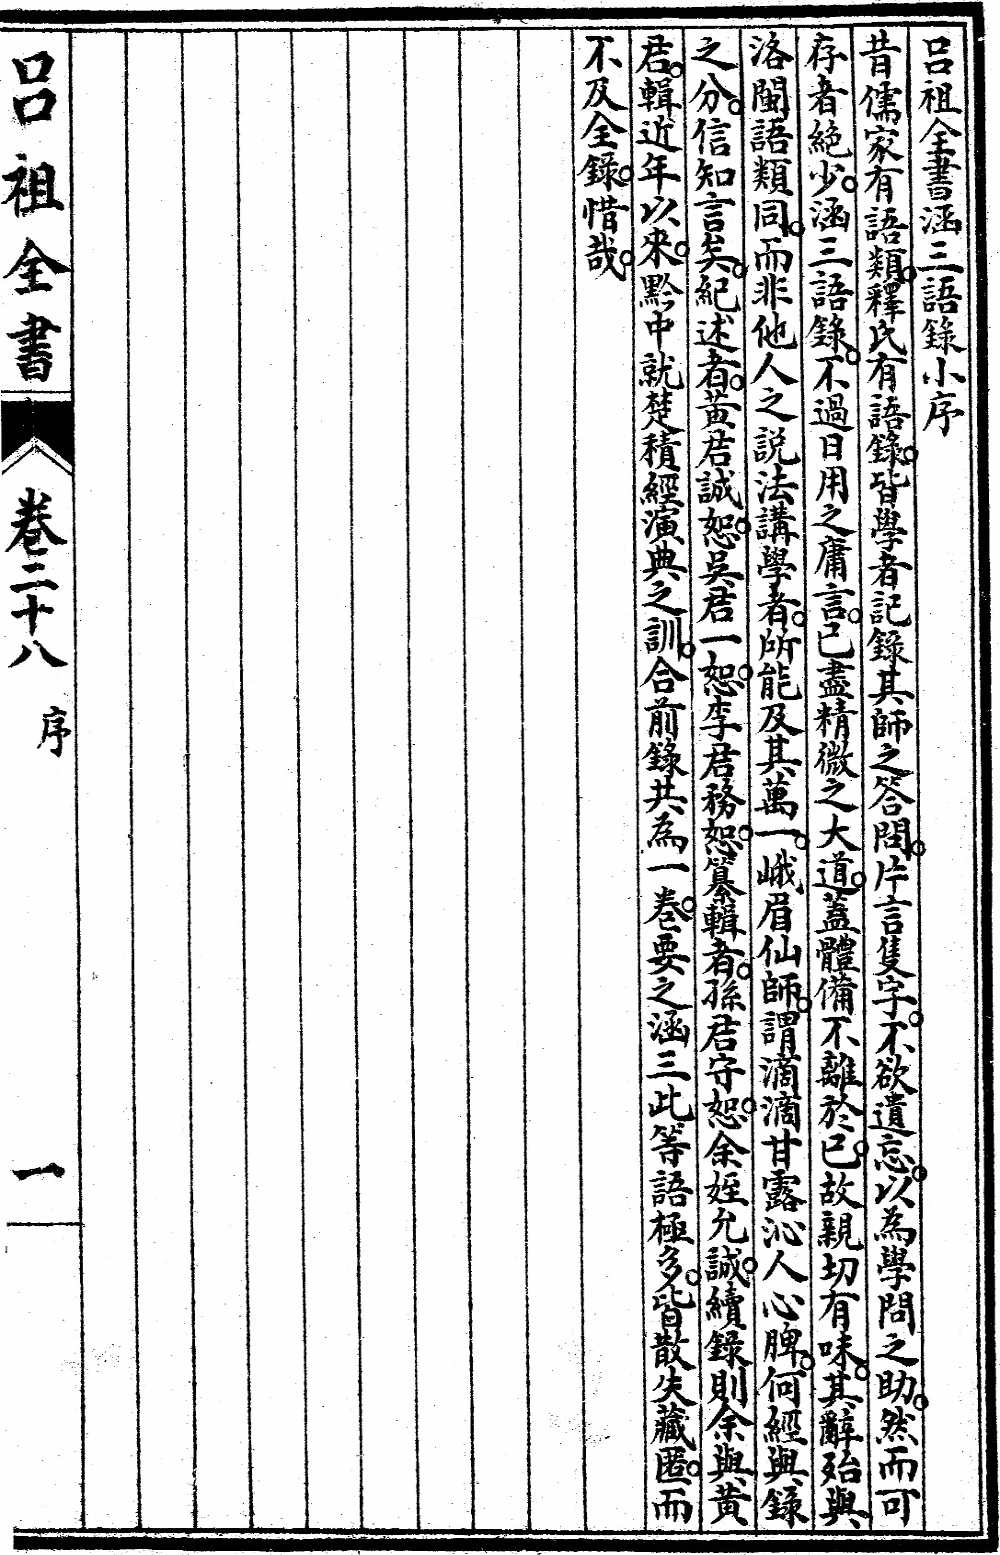 呂祖全書涵三語錄小序
昔儒家有語類。釋氏有語錄。皆學者記錄其師之答問。片言隻字。不欲遺忘。以為學問之助。然而可
存者絕少。涵三語錄。不過日用之庸言。已盡精微之大道。蓋體備不離於已。故親切有味。其辭殆與
洛閩語類同。而非他人之說法講學者。所能及其萬一。峨眉仙師。謂滴滴甘露沁人心脾。何經與錄
之分。信知言矣。紀述者。黃君誠恕。吳君一恕。李君務恕。纂輯者。孫君守恕。余姪允誠。續錄則余與黃
君。輯近年以來。黔中就楚積經演典之訓。合前錄共為一卷。要之涵三此等語極多。皆散失藏匿。而
不及全錄。惜哉。
呂祖全書
卷二十八
序
一